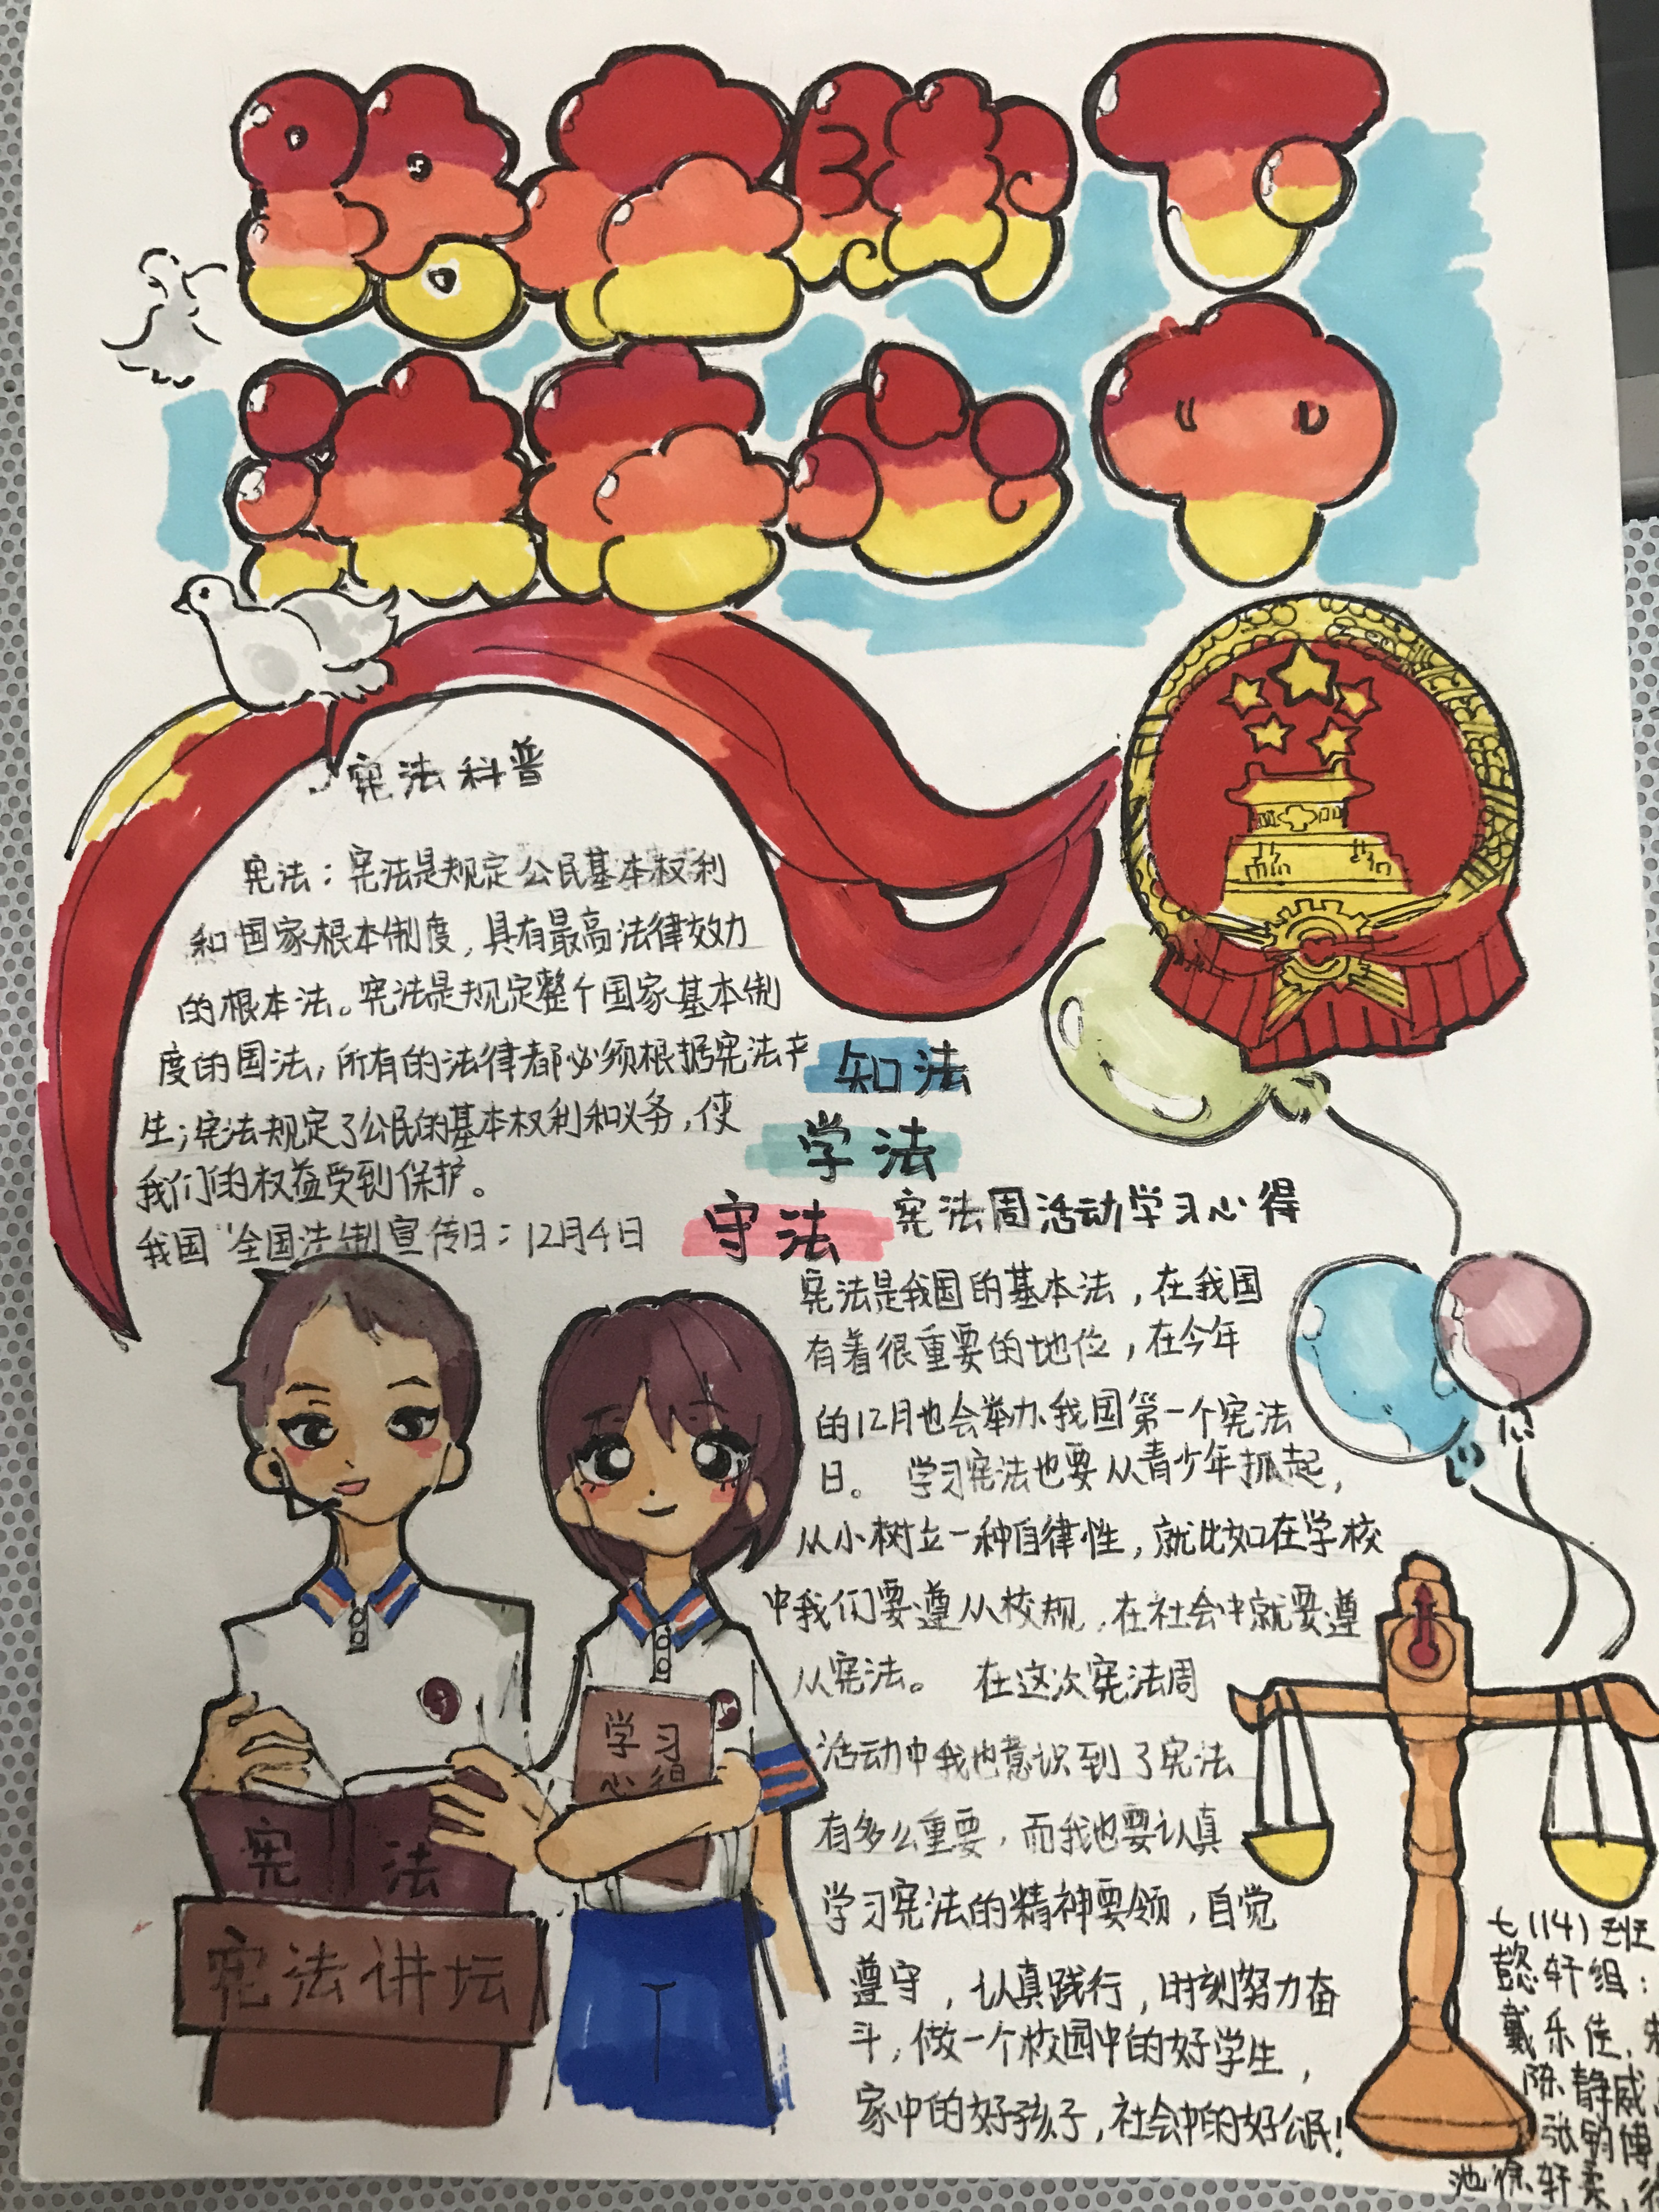 宪法科普
宪法：宪法是规定公民基本权利
和国家根本制度，具有最高法律效力
的根本法。宪法是规定整个国家基本制
度的国法，所有的法律都必须根据宪法产
生；宪法规定了公民的基本权利和义务，使
我们的权益受到保护。
我国"全国法制宣传日：12月4日
知法
学法
守法
宪法周活动学习心得
宪法是我国的基本法，在我国
有着很重要的地位，在今年
的12月也会举办我国第一个宪法
日。 学习宪法也要从青少年抓起，
从小树立一种自律性，就比如在学校
中我们要遵从校规，在社会中就要遵
从宪法。 在这次宪法周
活动中我也意识到了宪法
有多么重要，而我也要认真
学习宪法的精神要领，自觉
遵守，认真践行，时刻努力奋
斗，做一个校园中的好学生，
家中的好孩子，社会中的好公民！
学习
心得
宪法
宪法讲坛
七(14)班
懿轩组：
戴乐佳，
陈静威
张钧博
池徐轩柔